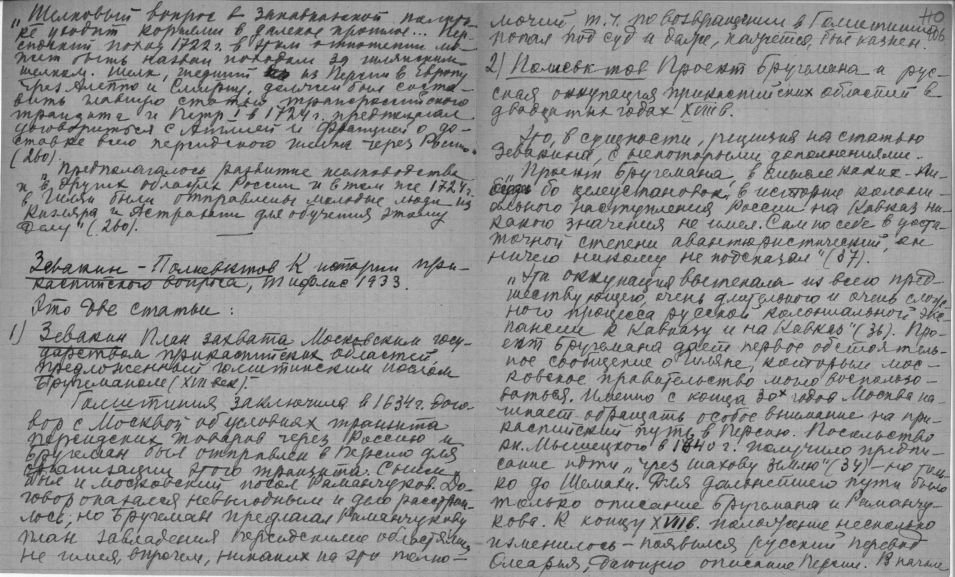 "Шелковый вопрос в Закавказской полити-
ке уходит корнями в далекое прошлое... Пер-
сидский поход 1722 г. в этом отношении мо-
жет быть назван походом за гилянским
шелком. Шелк, шедший из Персии в Европу
через Алеппо и Смирну, должен был соста-
вить главную статью транспортного
транзита и Петр I в 1724 г. предполагал
договориться с Англией и Францией о до-
ставке всего персидского шелка через Россию"
(260).
"Предполагалось развитие шелководства
и в других областях России и в том же 1724 г.
в Гилян были отправлены молодые люди из
Кизляра и Астрахани для обучения этому
делу" (260).
Зевакин - Полиевктов К истории при-
каспийского вопроса, Тифлис 1933.
Это две статьи:
1) Зевакин План захвата Московским госу-
дарством прикаспийских областей
предложенный голштинским послом
Бругеманом (XVII век).
Голштиния заключила в 1634 г. дого-
вор с Москвой об условиях транзита
персидских товаров через Россию и
Бругеман был отправлен в Персию для
организации этого транзита. С ним
был и московский посол Романчуков. До-
говор оказался невыгодным и дело расстрои-
лось, но Бругеман предлагал Романчукову
план завладения Персидскими областями,
не имея, впрочем, никаких на это полно-
110
406
мочий, т.ч. по возвращении в Голштинию
попал под суд и даже, кажется, был казнен.
2) Полиевктов Проект Бругемана и рус-
ская оккупация прикаспийских областей в
двадцатых годах XVIII в.
Это, в сущности, рецензия на статью
Зевакина, с некоторыми дополнениями.
"Проект Бругемана, в смысле каких-ни-
будь бо целеустановок, в истории колони-
ального наступления России на Кавказ ни-
какого значения не имел. Сам по себе в доста-
точной степени авантюристический, он
ничего никому не подсказал" (37).
"Эта оккупация вытекала из всего пред-
шествующего, очень длительного и очень слож-
ного процесса русской колониальной экс-
пансии к Кавказу и на Кавказ" (36). Про-
ект Бругемана дает первое обстоятель-
ное сообщение о Гиляне, которым мос-
ковское правительство могло воспользо-
ваться. Именно с конца 30х годов Москва на-
чинает обращать особое внимание на при-
каспийский путь в Персию. Посольство
кн. Мышецкого в 1640 г. получило предпи-
сание идти "через шахову землю" (34) - но толь-
ко до Шемахи. Для дальнейшего пути было
только описание Бругемана и Романчу-
кова. К концу XVII в. положение несколько
изменилось - появился русский перевод
Олеария, дающего описание Персии. В начале